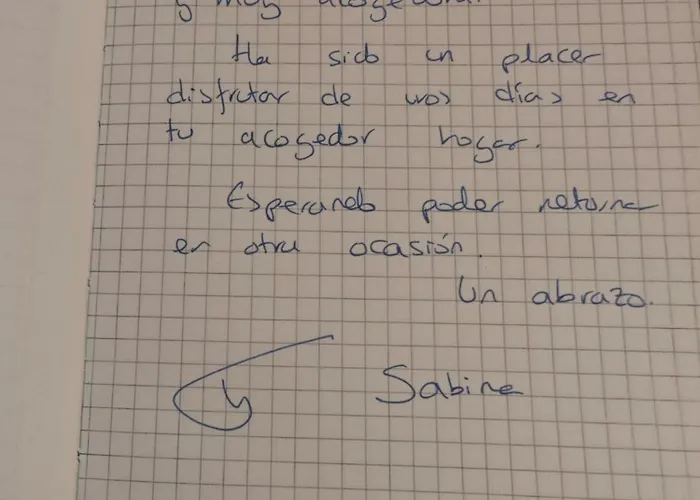 y muy acogedora.
Ha sido un placer
disfrutar de unos días en
tu acogedor hogar.
Esperando poder retornar
en otra ocasión.
Un abrazo.
y Sabine